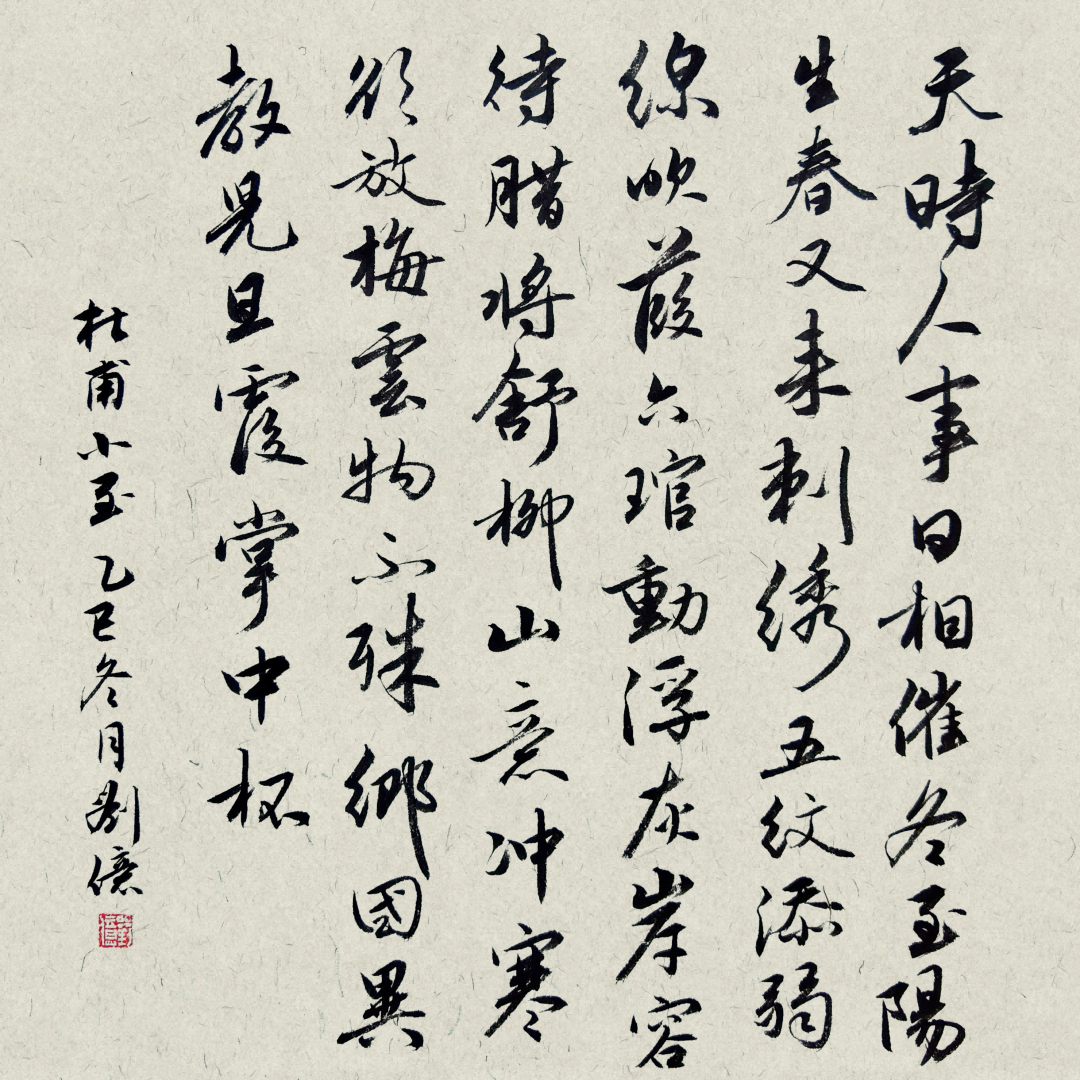 天時人事日相催冬至陽
生春又来刺绣五纹添弱
線吹葭六琯動浮灰岸容
待腊将舒柳山意冲寒
欲放梅雲物不殊鄉國異
教児且覆掌中杯
杜甫小至乙巳冬月劉億